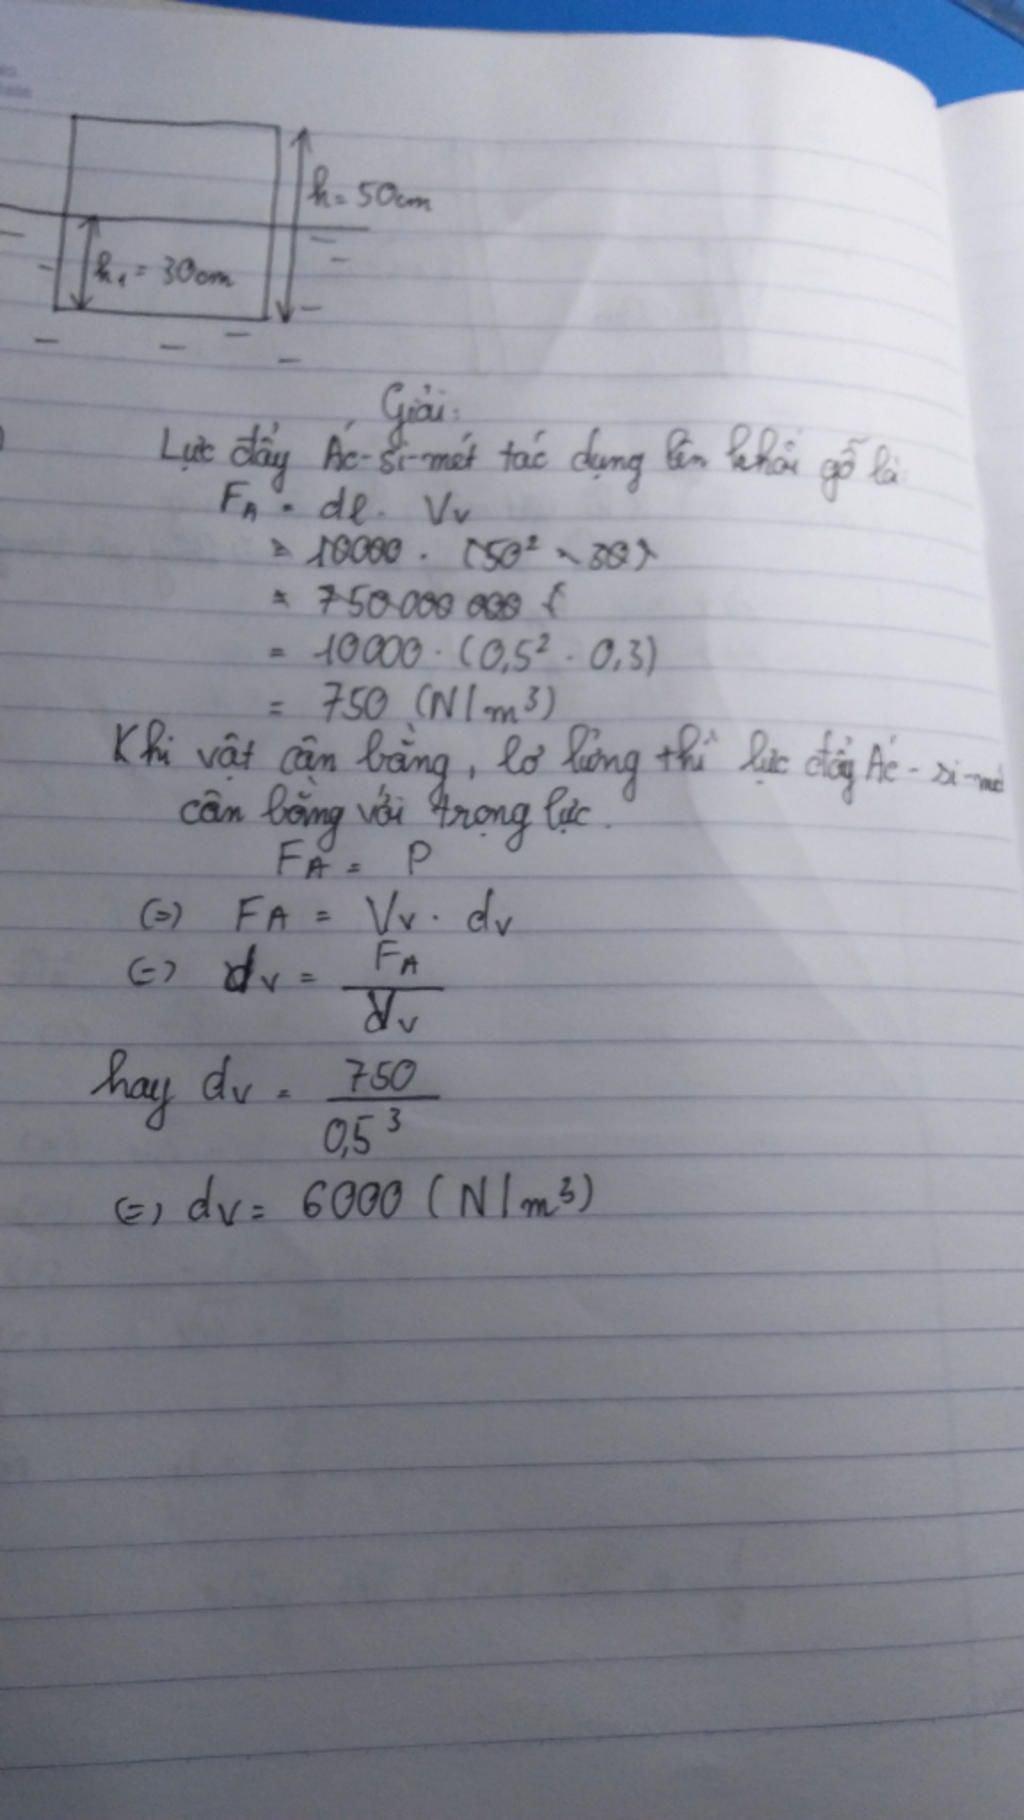 h = 50cm
h₁ = 30cm
Giải:
Lực đẩy Ác-si-mét tác dụng lên khối gỗ là
F_A = dl. V_v
= 10000 . (50² × 30)
= 750 000 000
= 10000 . (0,5² . 0,3)
= 750 (N/m³)
Khi vật cân bằng, lơ lửng thì lực đẩy Ác-si-mé
cân bằng với trọng lực.
F_A = P
(=) F_A = V_v . d_v
(=) d_v = F_A / V_v
hay d_v = 750 / 0,5³
(=) d_v = 6000 (N/m³)